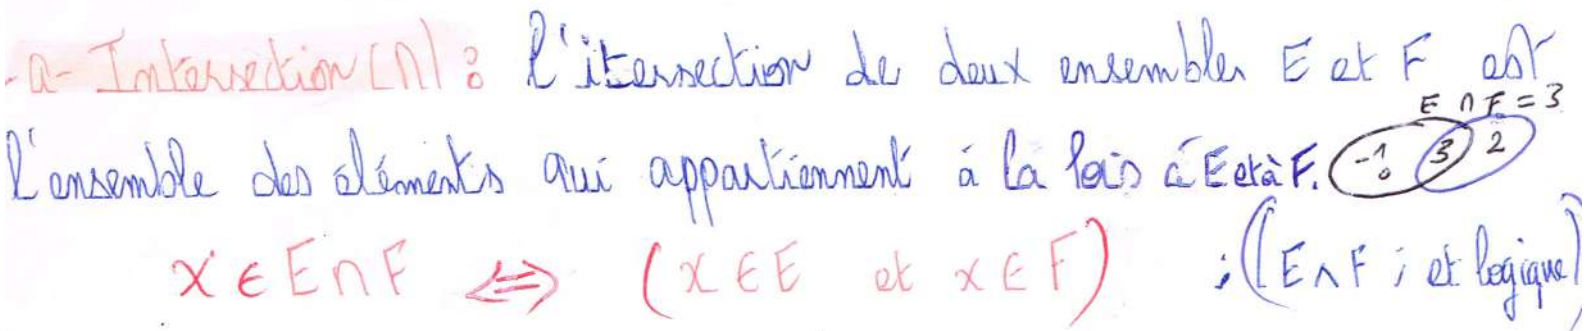 -a- Intersection (∩) : l'itersection de deux ensembles E et F est
E ∩ F = 3
l'ensemble des éléments qui appartiennent à la fois à E et à F. -1 0 3 2
x ∈ E ∩ F ⟺ (x ∈ E et x ∈ F) ; (E ∧ F ; et logique)